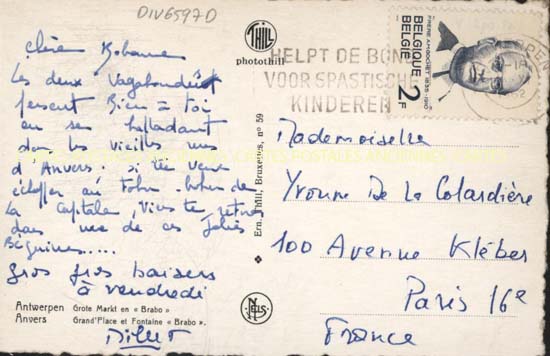 DIV6597D
Chère
Les deux Vagabondes
pensent Bien à toi
en se balladant
dans les vieilles rues
d'Anvers, si tu veux
échapper au Tohu-bohu de
la Capitale, Viens te
dans une de ces Jolies
Béguines.....
gros gros baisers
à vendredi
Antwerpen Grote Markt en « Brabo »
Anvers Grand'Place et Fontaine « Brabo ».
THILL
photothill
Ern. Thill, Bruxelles, n° 59
NELS
HELPT DE BOND
VOOR SPASTISCHE
KINDEREN
FRERE AMBOCHET 1835-1910
BELGIQUE
BELGIE
2F
Mademoiselle
Yvonne De La Colardière
100 Avenue Kléber
Paris 16e
France